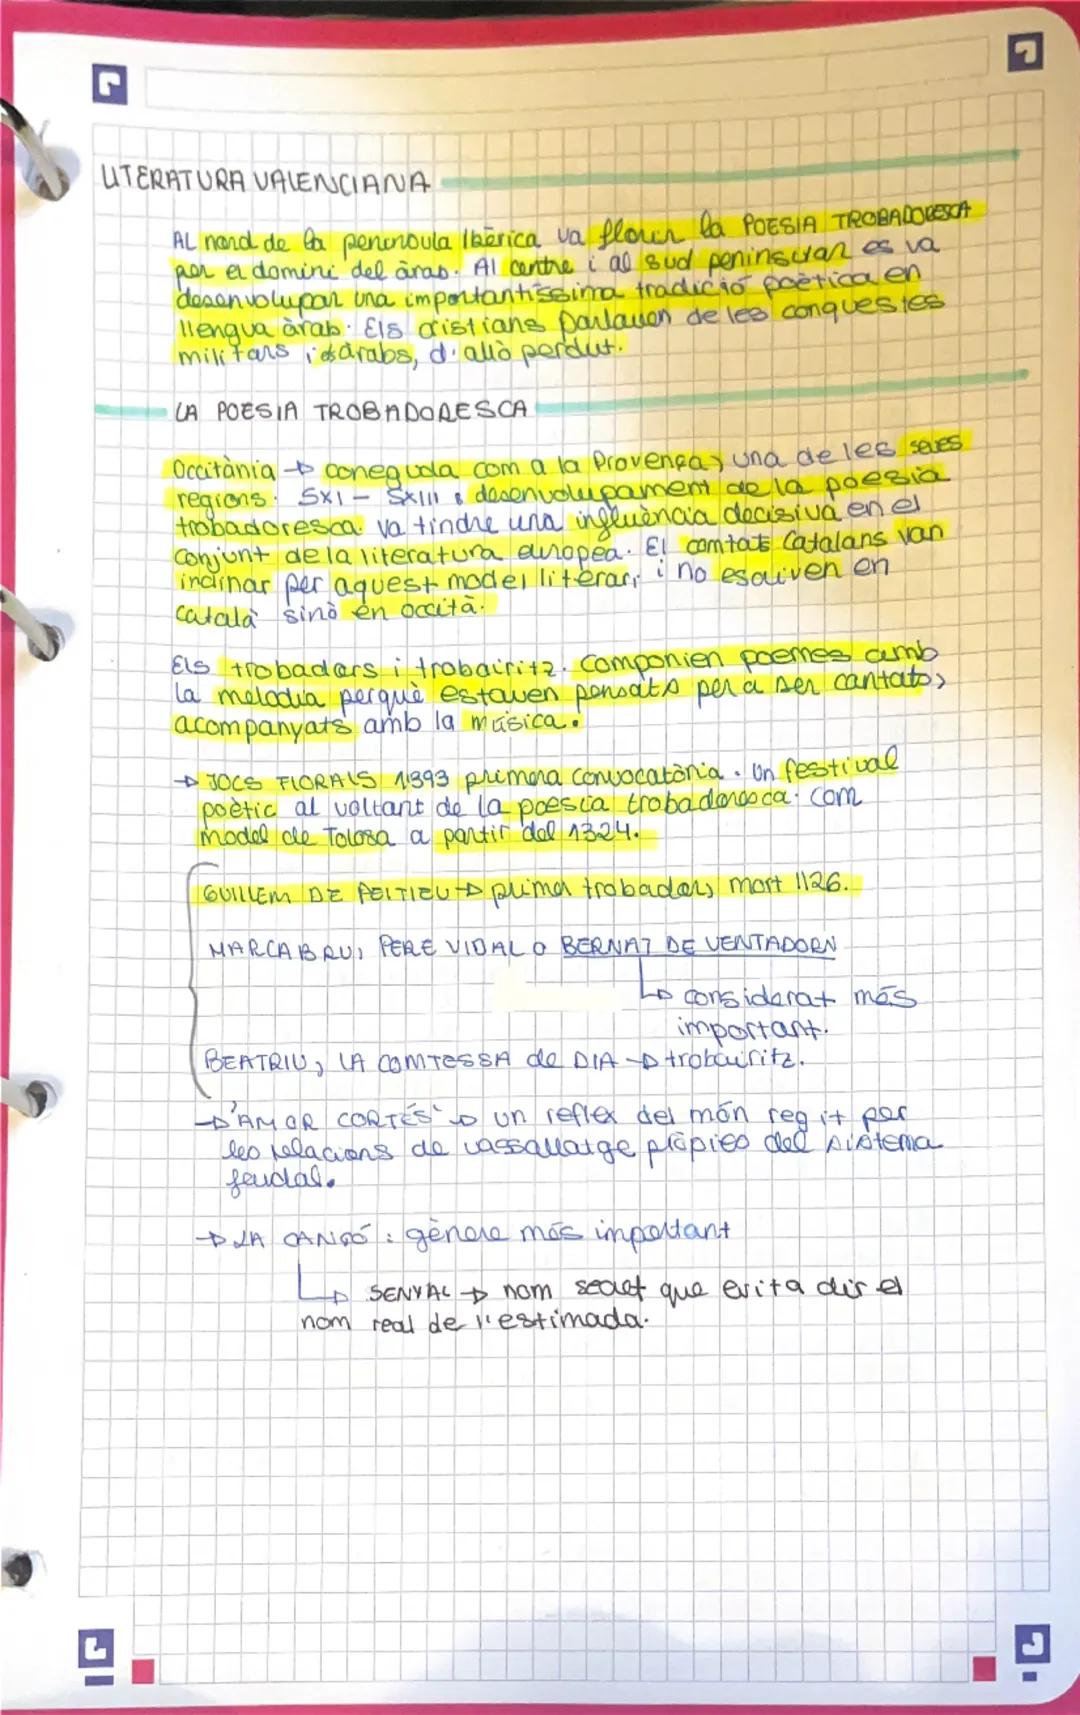 LITERATURA VALENCIANA
AL nord de la península Ibèrica va florir la POESIA TROBADORESCA
per el domini del àrab. Al centre i al sud peninsular es va
desenvolupar una importantíssima tradició poètica en
llengua àrab. Els cristians parlaven de les conquestes
militars i els àrabs, d'allò perdut.
LA POESIA TROBADORESCA
Occitània → coneguda com a la Provença, una de les seues
regions. SXI - SXIII : desenvolupament de la poesia
trobadoresca. Va tindre una influència decisiva en el
conjunt de la literatura europea. El comtats Catalans van
inclinar per aquest model literari, i no escriven en
català sinò en occità.
Els trobadors i trobairitz. Componien poemes amb
la melodia perquè estaven pensats per a ser cantats,
acompanyats amb la música.
→ JOCS FLORALS 1393 primera convocatòria. Un festival
poètic al voltant de la poesia trobadoresca. Com
model de Tolosa a partir del 1324.
GUILLEM DE PEITIEU → primer trobador, mort 1126.
MARCABRU, PERE VIDAL O BERNAT DE VENTADORN
↳ considerat més
important.
BEATRIU, LA COMTESSA de DIA → trobairitz.
→ 'AMOR CORTÉS' → un reflex del món regit per
les relacions de vassallatge pròpies del sistema
feudal.
→ LA CANÇÓ : gènere més important
↳ SENYAL → nom secret que evita dir el
nom real de l'estimada.